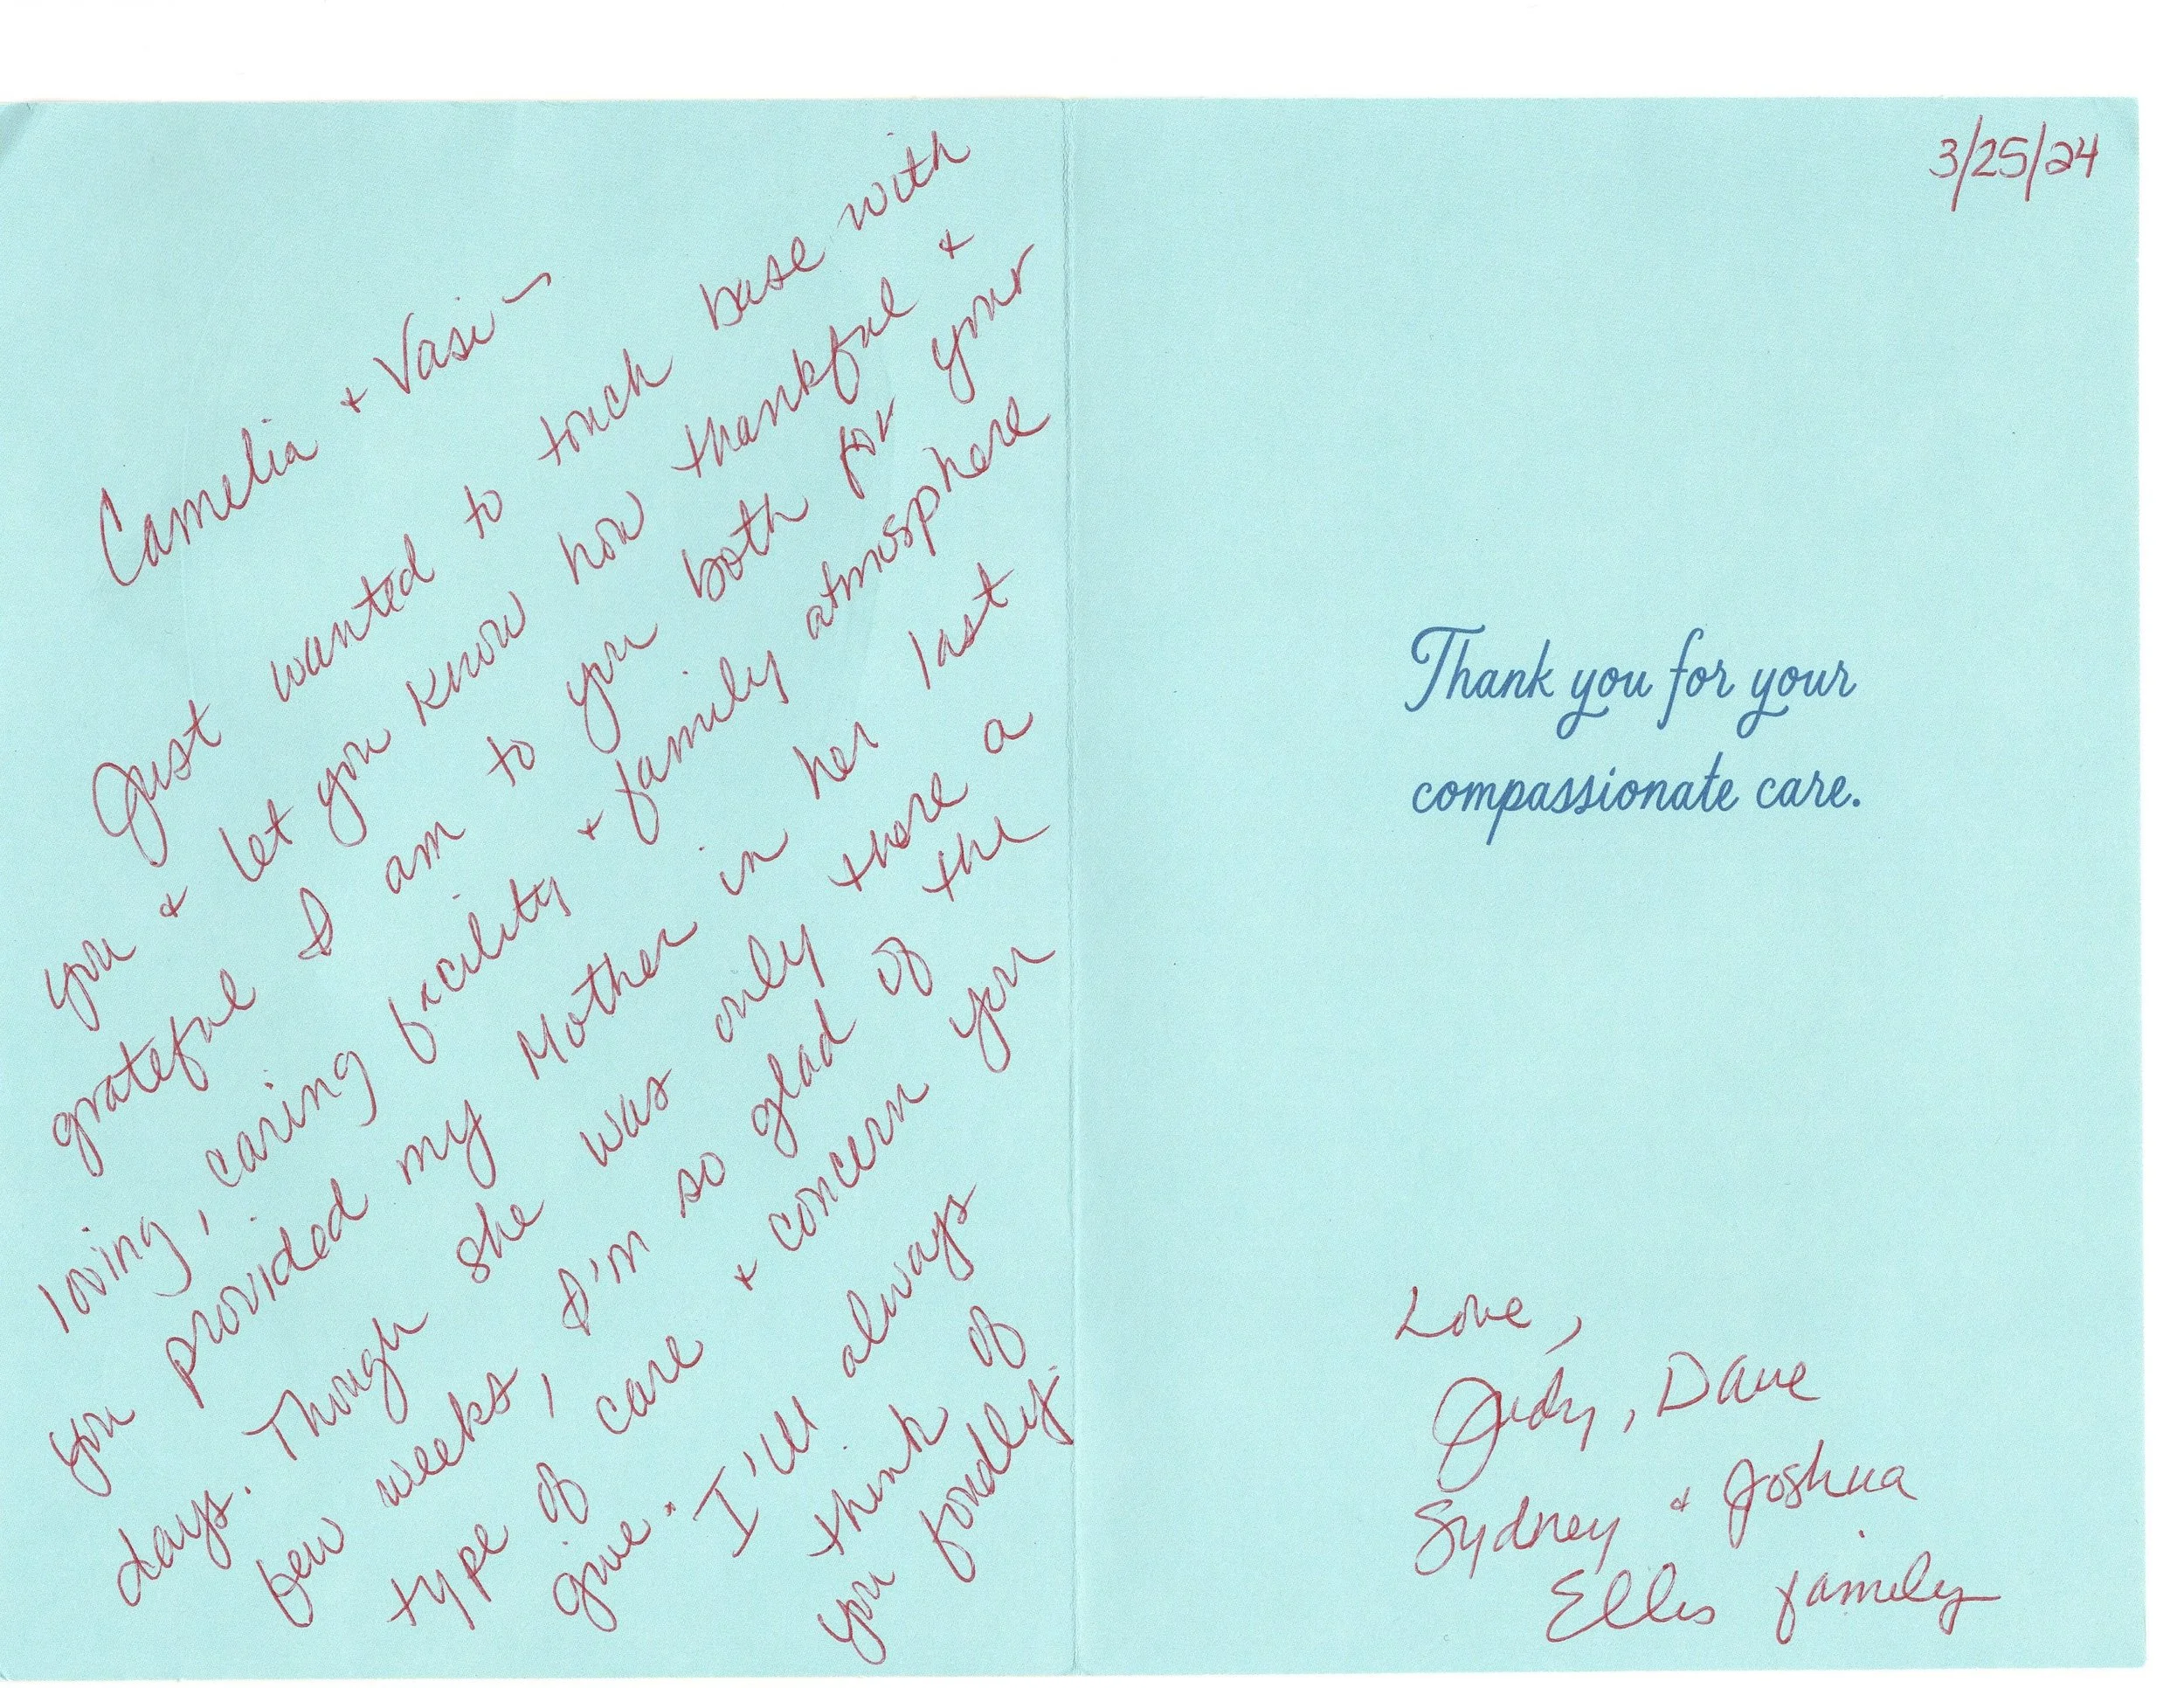 Camelia + Vasi -
Just wanted to touch base with
you + let you know how thankful +
grateful I am to you both for your
loving, caring facility + family atmosphere
you provided my Mother in her last
days. Though she was only there a
few weeks, I'm so glad of the
type of care + concern you
give. I'll always
think of
you fondly.
3/25/24
Thank you for your
compassionate care.
Love,
Judy, Dave
Sydney + Joshua
Ellis family